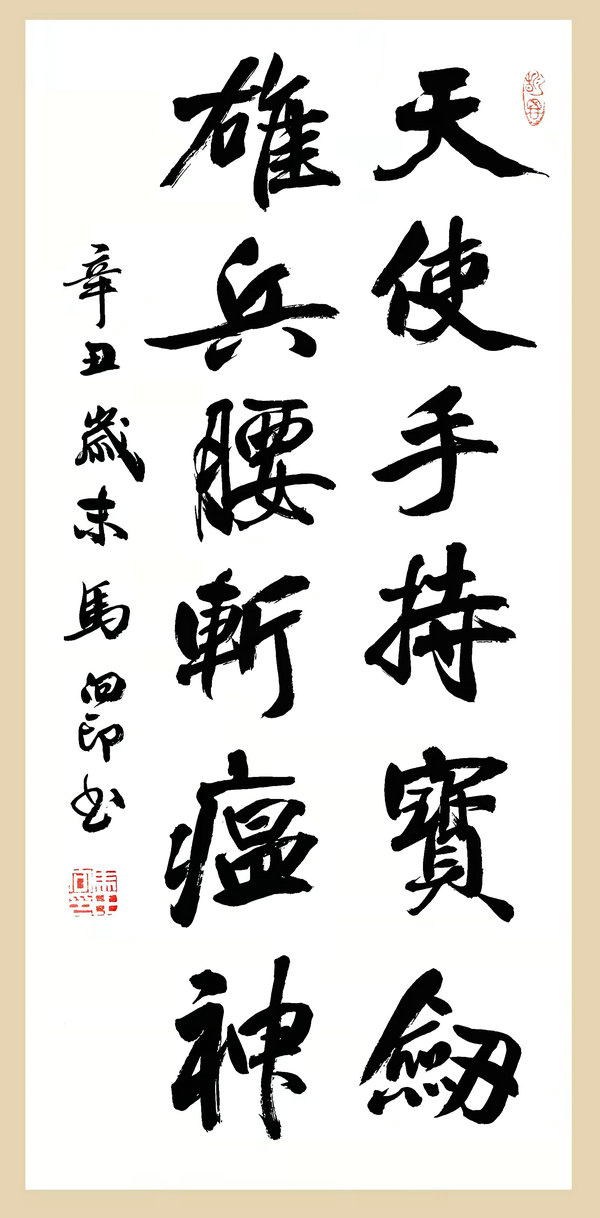 天使手持寶劔
雄兵腰斬瘟神
辛丑歲末馬向印书